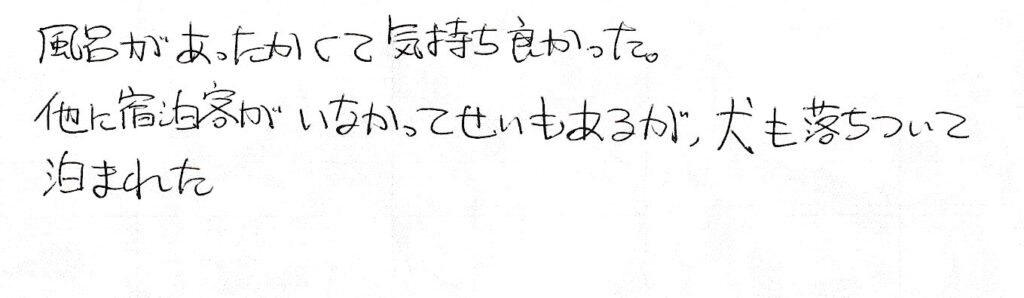 風呂があったかくて気持ち良かった。
他に宿泊客がいなかってせいもあるが、犬も落ちついて
泊まれた